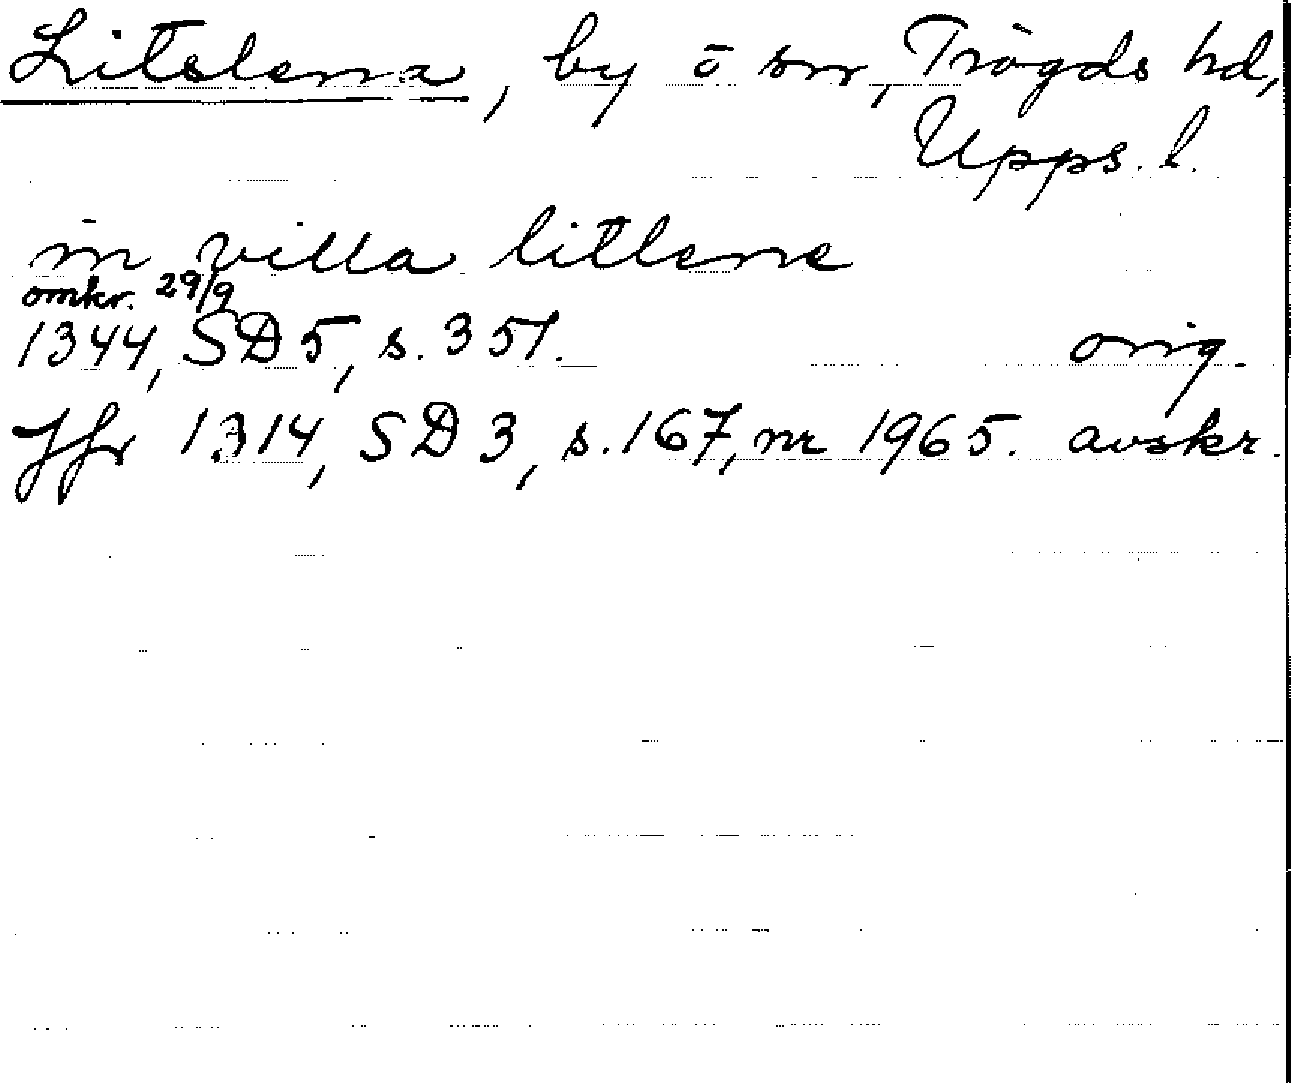 Litslena, by o sn, Trögds hd,
Upps. l.
in villa litlene
omkr. 29/9
1344, SD 5, s. 351. orig.
Jfr 1314, SD 3, s. 167, nr 1965. avskr.